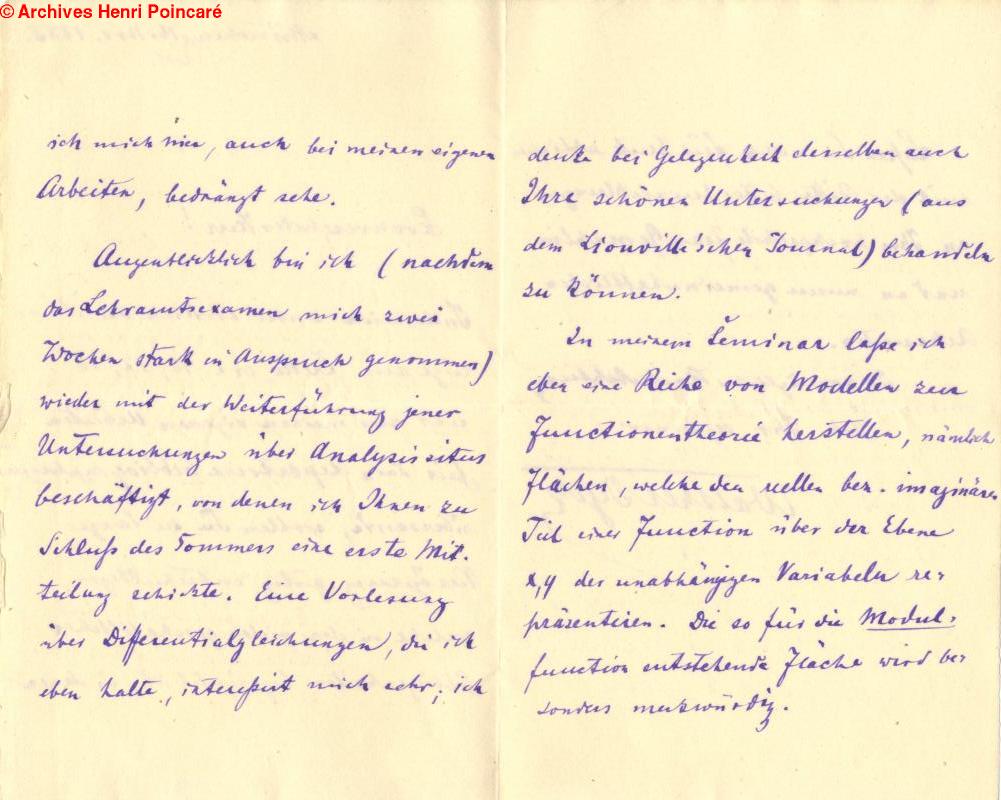 © Archives Henri Poincaré
ich mich hier, auch bei meinen eigenen
Arbeiten, bedrängt sehe.
Augenblicklich bin ich (nachdem
das Lehramtsexamen mich zwei
Wochen stark in Anspruch genommen)
wieder mit der Weiterführung jener
Untersuchungen über Analysis situs
beschäftigt, von denen ich Ihnen zu
Schluß des Sommers eine erste Mit-
teilung schickte. Eine Vorlesung
über Differentialgleichungen, die ich
eben halte, intereßirt mich sehr; ich
denke bei Gelegenheit derselben auch
Ihre schönen Untersuchungen (aus
dem Liouville'schen Journal) behandeln
zu können.
In meinem Seminar laße ich
eben eine Reihe von Modellen zur
Functionentheorie herstellen, nämlich
Flächen, welche den reellen bez. imaginären
Teil einer Function über der Ebene
x, y der unabhängigen Variabeln re-
präsentiren. Die so für die Modul-
function entstehende Fläche wird be-
sonders merkwürdig.